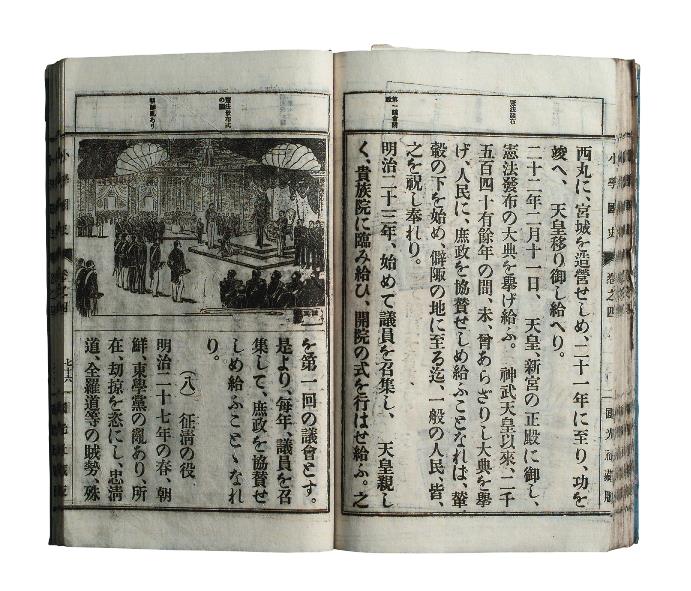 憲法發布
西丸に、宮城を造營せしめ、二十一年に至り、功を
竣へ、天皇移り御し給へり。
二十二年二月十一日、天皇、新宮の正殿に御し、
憲法發布の大典を擧げ給ふ。神武天皇以來、二千
五百四十有餘年の間、未、曾あらざりし大典を擧
げ、人民に、庶政を協賛せしめ給ふことなれは、輦
轂の下を始め、僻陬の地に至る迄、一般の人民、皆、
之を祝し奉れり。
明治二十三年、始めて議員を召集し、天皇親し
く、貴族院に臨み給ひ、開院の式を行はせ給ふ。之
小學國史 卷之四
國光社藏版
憲法發布式の圖
朝鮮亂あり
を第一回の議會とす。
是より、毎年、議員を召
集して、庶政を協賛せ
しめ給ふことゝなれ
り。
(八) 征淸の役
明治二十七年の春、朝
鮮、東學黨の亂あり、所
在、劫掠を恣にし、忠淸
道、全羅道等の賊勢、殊
小學國史 卷之四
七十六